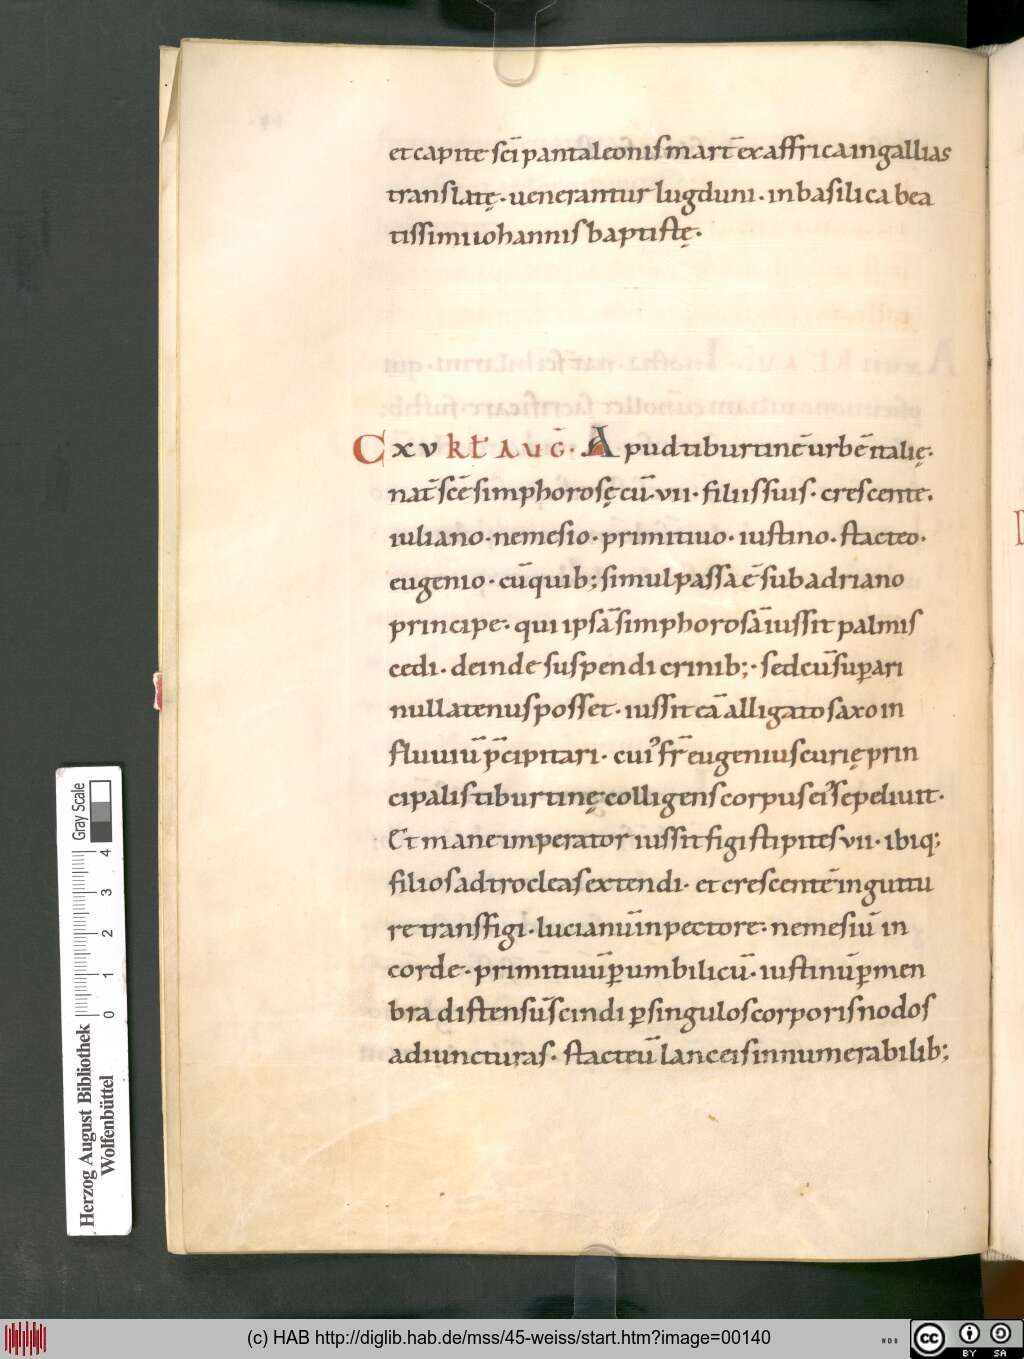 et capite sc̄i pantaleonis mart̄ ex affrica in gallias
translatę · uenerantur lugduni · in basilica bea
tissimi iohannis baptistę ·
C xv kł auḡ · Apud tiburtinē urbē italię ·
nat̄ sc̄ę simphorosę cū · vii · filiis suis · crescente ·
iuliano · nemesio · primitiuo · iustino · stacteo ·
eugenio · cū quib; simul passa ē sub adriano
principe · qui ipsā simphorosā iussit palmis
cedi · deinde suspendi crinib; · sed cū suꝑari
nullatenus posset · iussit eā alligato saxo in
fluuiū p̄cipitari · cuiꝰ fr̄ eugenius curię prin
cipalis tiburtinę colligens corpus eiꝰ sepeliuit ·
Et mane imperator iussit figi stipites vii · ibiq;
filios ad trocleas extendi · et crescentē in guttu
re transfigi · lucianū in pectore · nemesiū in
corde · primitiuū ꝑ umbilicū · iustinū ꝑ men
bra distensū scindi ꝑ singulos corporis nodos
ad iuncturas · stacteū lanceis innumerabilib;
Herzog August Bibliothek
Wolfenbüttel
0 1 2 3 4
Gray Scale
(c) HAB http://diglib.hab.de/mss/45-weiss/start.htm?image=00140
WDB
cc BY SA